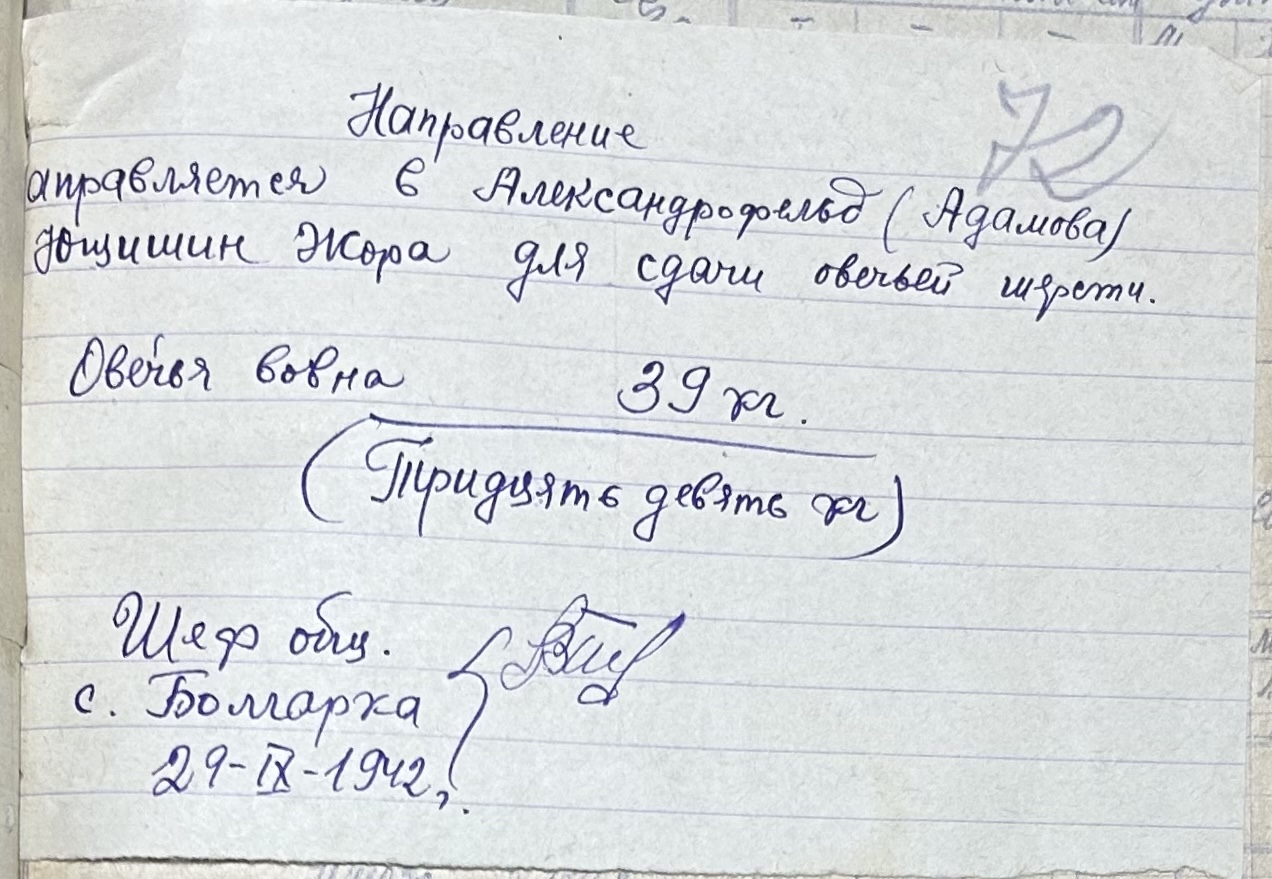 Направление
72
аправляется в Александрофельд (Адамова)
Ющишин Жора для сдачи овечьей шерсти.
Овечья вовна 39 кг.
(Тридцять девять кг)
Шеф общ.
с. Болгарка
29-IX-1942,.